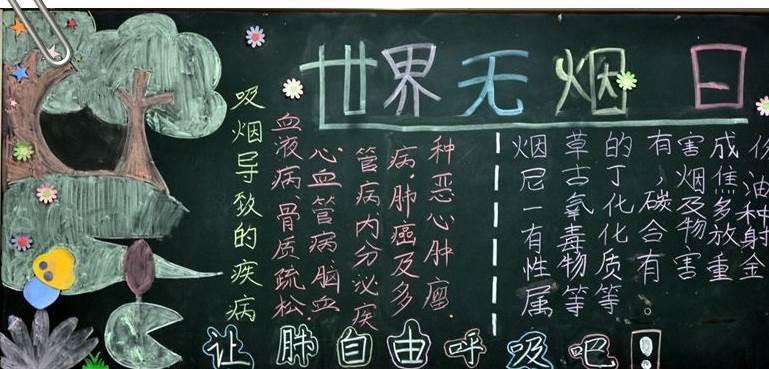 世界无烟日
吸烟导致的疾病
血液病、骨质疏松
心血管病、脑血
管病内分泌疾
病.肺癌及多
种恶心肿瘤.
烟草的有害成份
尼古丁、烟焦油
一氧化碳及多种
有毒化合物放射
性物质有害重金
属等等。
让肺自由呼吸吧!